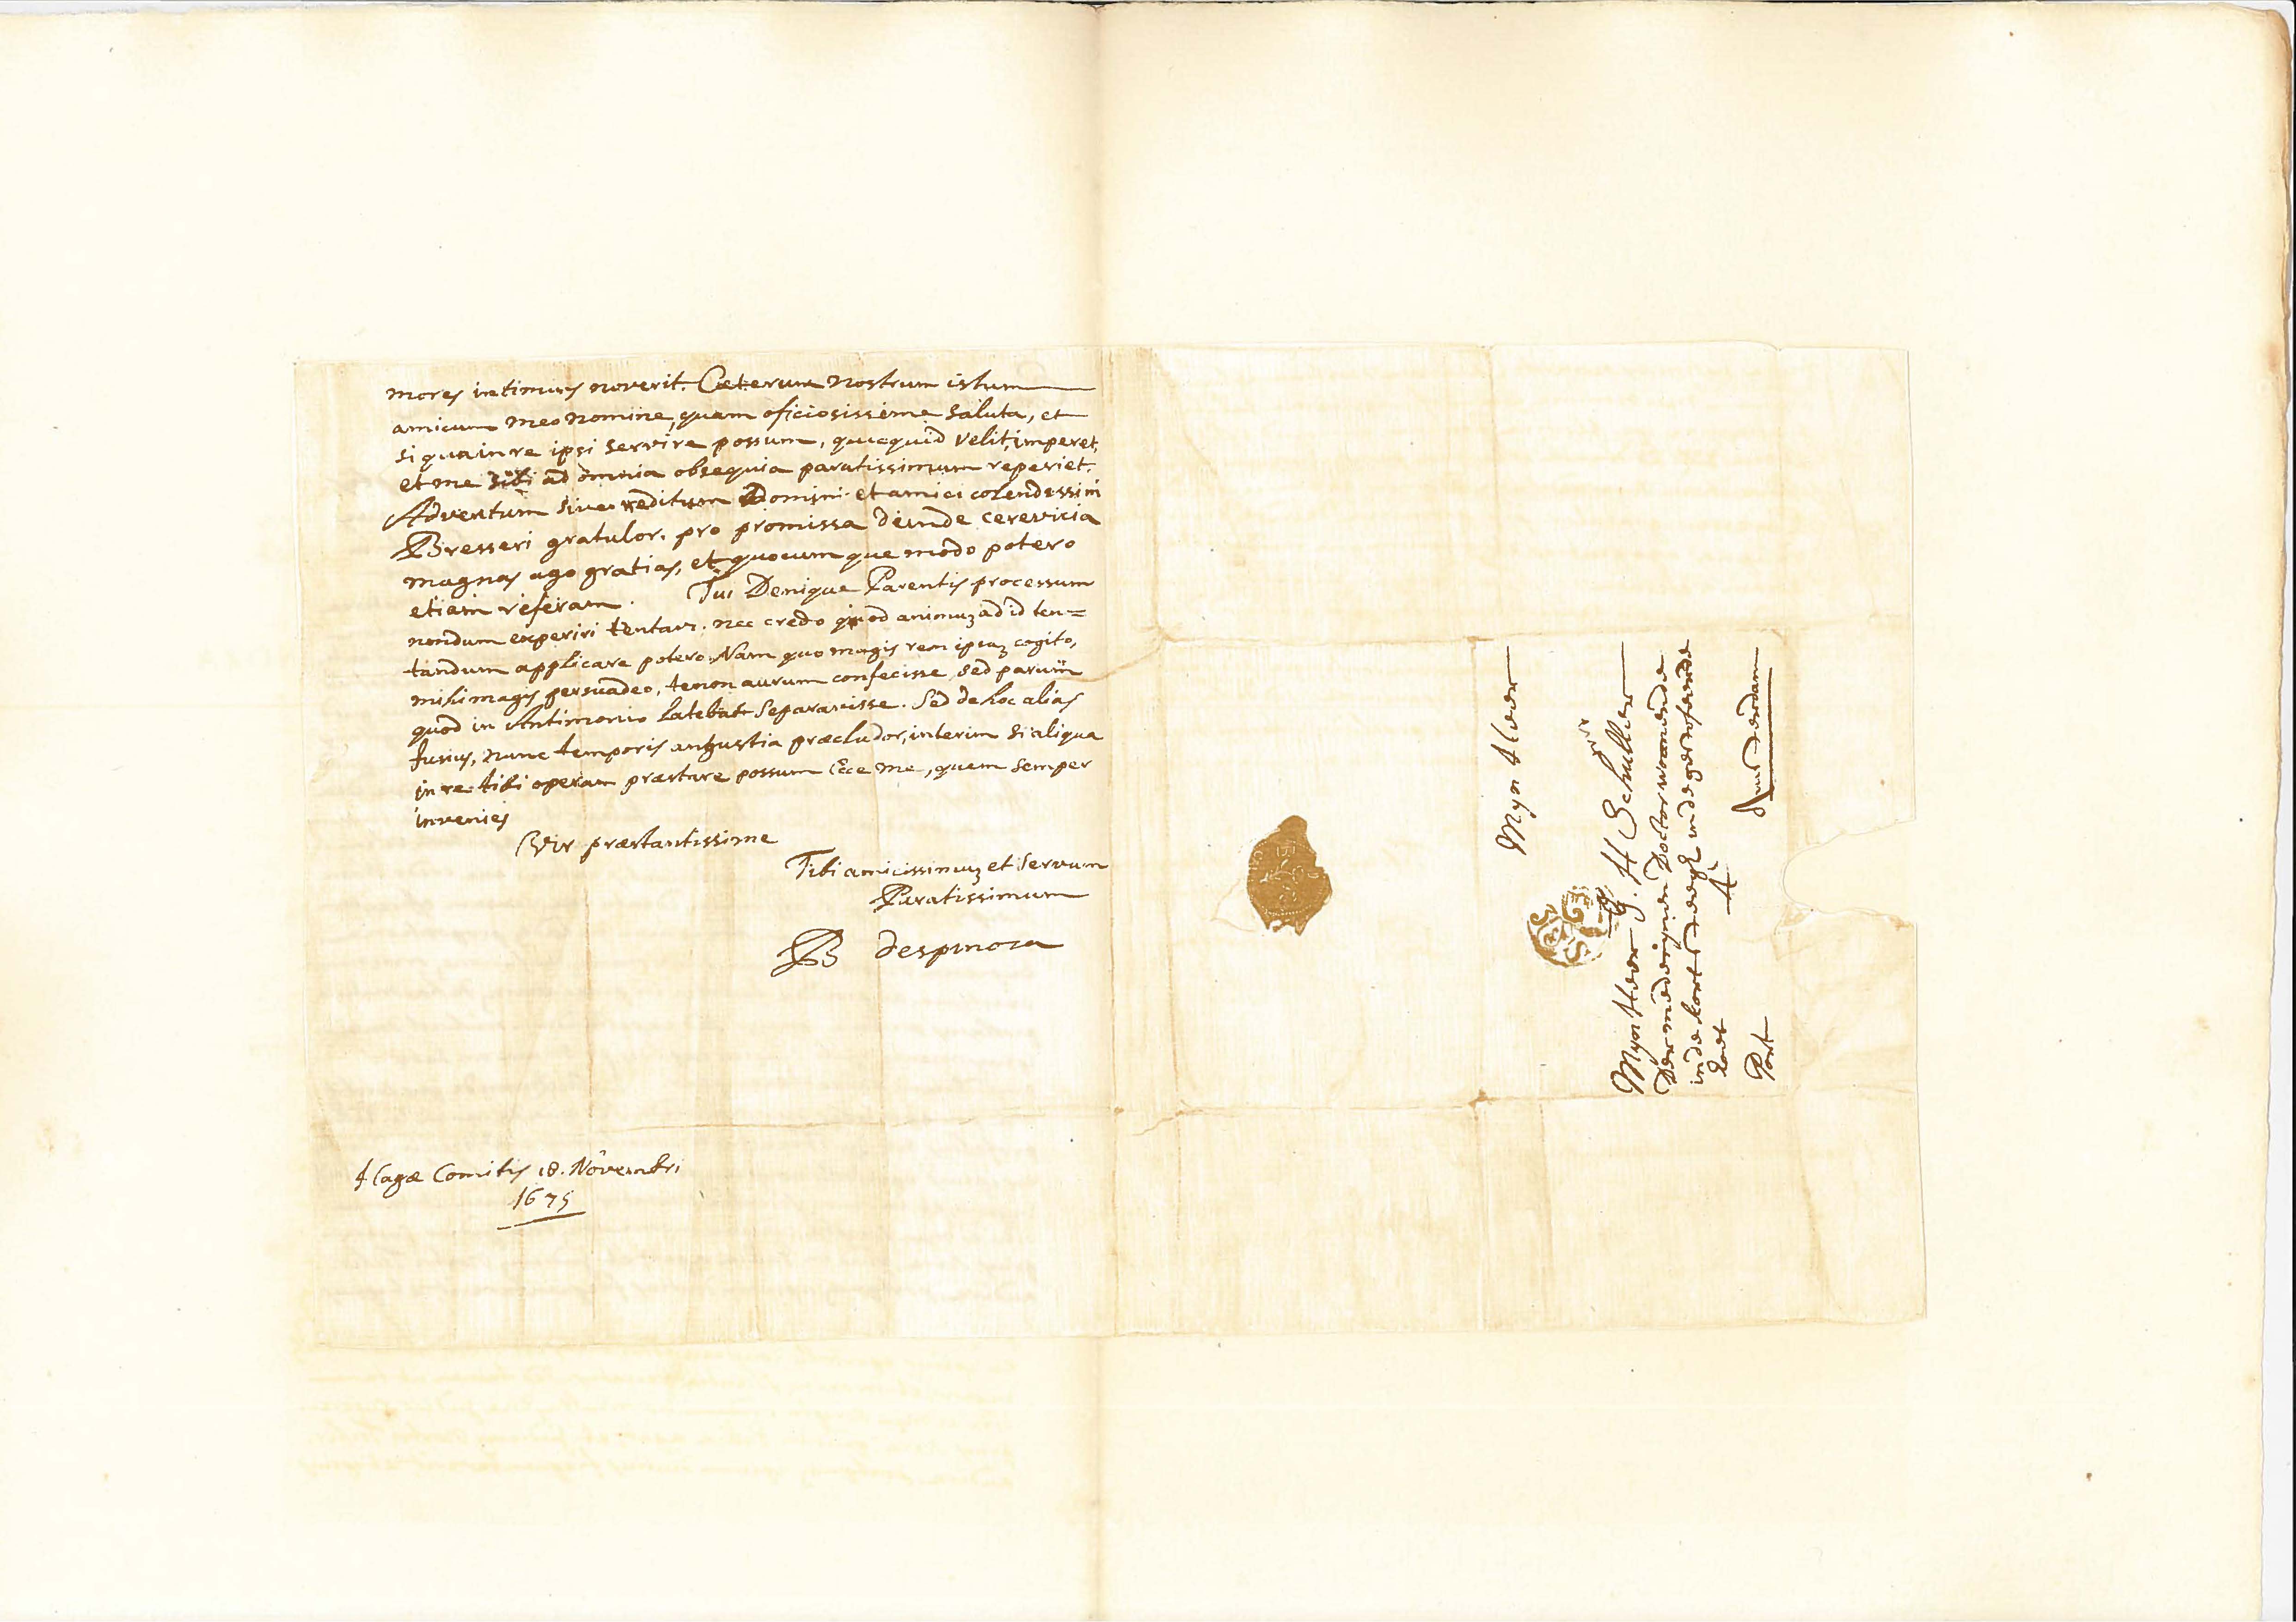 mores intimius noverit. Cæterum nostrum istum
amicum meo nomine, quam oficiosissime saluta, et
si qua in re ipsi servire possum, quicquid velit, imperet,
et me sibi ad omnia obsequia paratissimum reperiet.
Adventum sive reditum Domini et amici colendissimi
Bresseri gratulor. pro promissa deinde cerevicia
magnas ago gratias, et quocumque modo potero
etiam referam. Tui Denique Parentis processum
nondum experiri tentavi. nec credo quod animuz ad id ten=
tandum applicare potero. Nam quo magis rem ipsaz cogito,
mihi magis persuadeo, te non aurum confecisse, sed parum
quod in Antimonio latebat separavisse. Sed de hoc alias
fusius, nunc temporis angustia præcludor, interim si aliqua
in re tibi operam præstare possum Ecce me, quem semper
invenies
Vir præstantissime
Tibi amicissimuz et servum
Paratissimum
B despinoza
Hagæ Comitis 18. Novembri
1675
Myn Heer
Myn Heer G. H Schuller
Der medecynen Doctor woonende
in de kortsteegh in de gestofeerde
hoet A°
Port Amsterdam